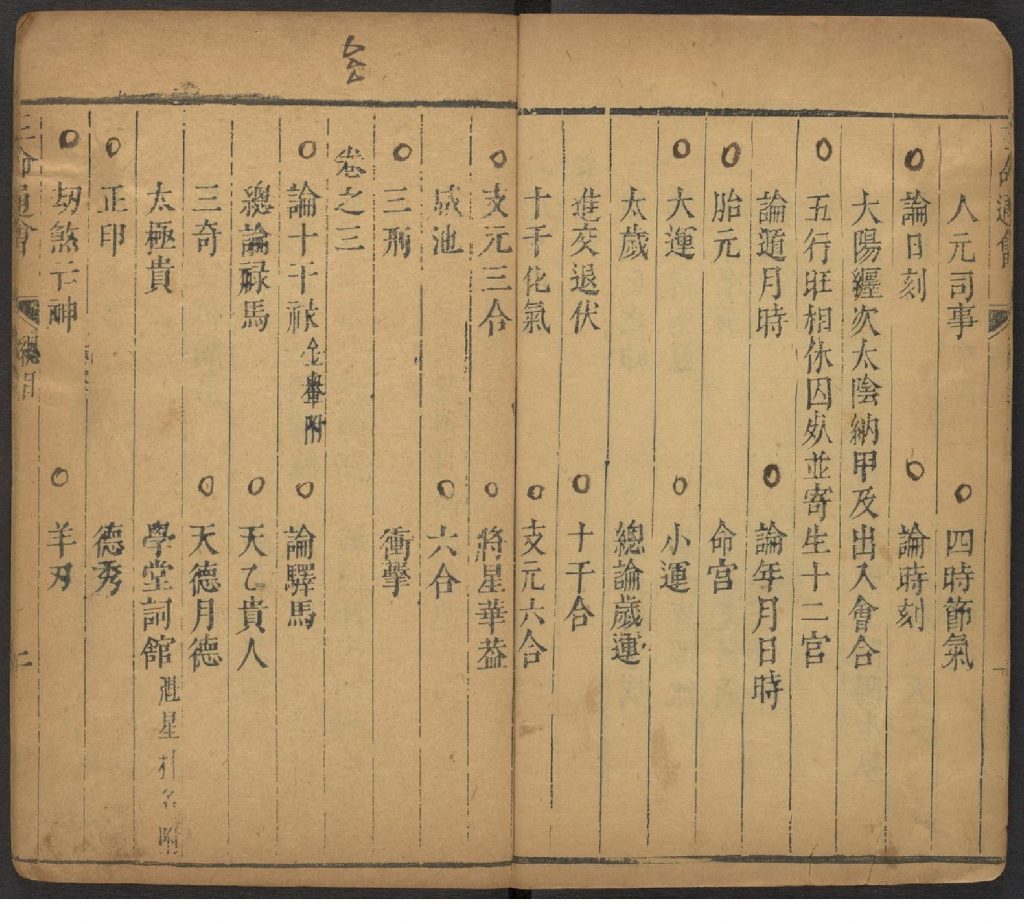 人元司事 〇四時節氣
〇論日刻 〇論時刻
大陽纏次太陰納甲及出入會合
〇五行旺相休囚並寄生十二宫
論遁月時 〇論年月日時
〇胎元 命宫
〇大運 〇小運
太歲 總論歲運
進交退伏 〇十干合
十干化氣 〇支元六合
〇支元三合 〇將星華葢
咸池 〇六合
〇三刑 衝擊
卷之三
〇論十干祿金轝附 〇論驛馬
總論禄馬 〇天乙貴人
三奇 〇天德月德
太極貴 學堂詞館魁星拱名附
〇正印 德秀
〇刼煞亡神 〇羊刃
三命通會 總目